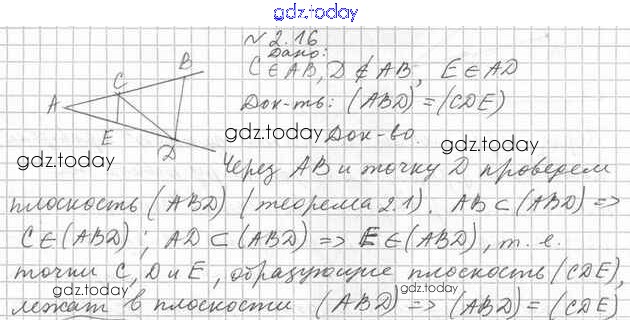 gdz.today
№ 2.16
Дано:
C ∈ AB, D ∉ AB, E ∈ AD
Док-ть: (ABD) = (CDE)
Док-во.
A
C
B
E
D
gdz.today
gdz.today
gdz.today
Через AB и точку D проведем
плоскость (ABD) (теорема 2.1). AB ⊂ (ABD) =>
C ∈ (ABD); AD ⊂ (ABD) => E ∈ (ABD), т. е.
точки C, D и E, образующие плоскость (CDE),
лежат в плоскости (ABD) => (ABD) = (CDE)
gdz.today
gdz.today
gdz.today